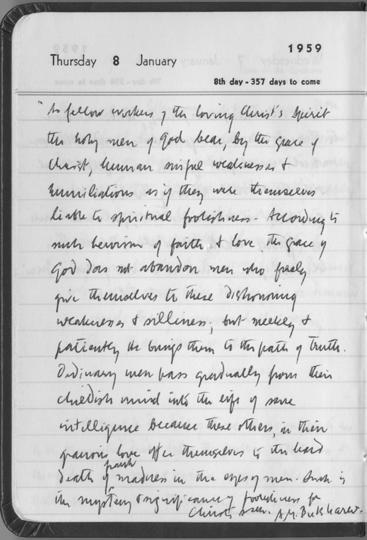 1959
Thursday 8 January
8th day - 357 days to come
"As fellow workers of the loving Christ's Spirit
the holy men of God bear, by the grace of
Christ, human sinful weaknesses &
humiliations as if they were themselves
liable to spiritual foolishness. According to
such heroism of faith & love the grace of
God does not abandon men who freely
give themselves to these dishonouring
weaknesses & silliness, but meekly &
patiently He brings them to the path of Truth.
Ordinary men pass gradually from their
childish mind into the life of sane
intelligence because these others, in their
love offer themselves to the hard
death of madness in the eyes of men. Such is
the mystery & significance of foolishness for
Christ's sake. A.M. Bukharev.